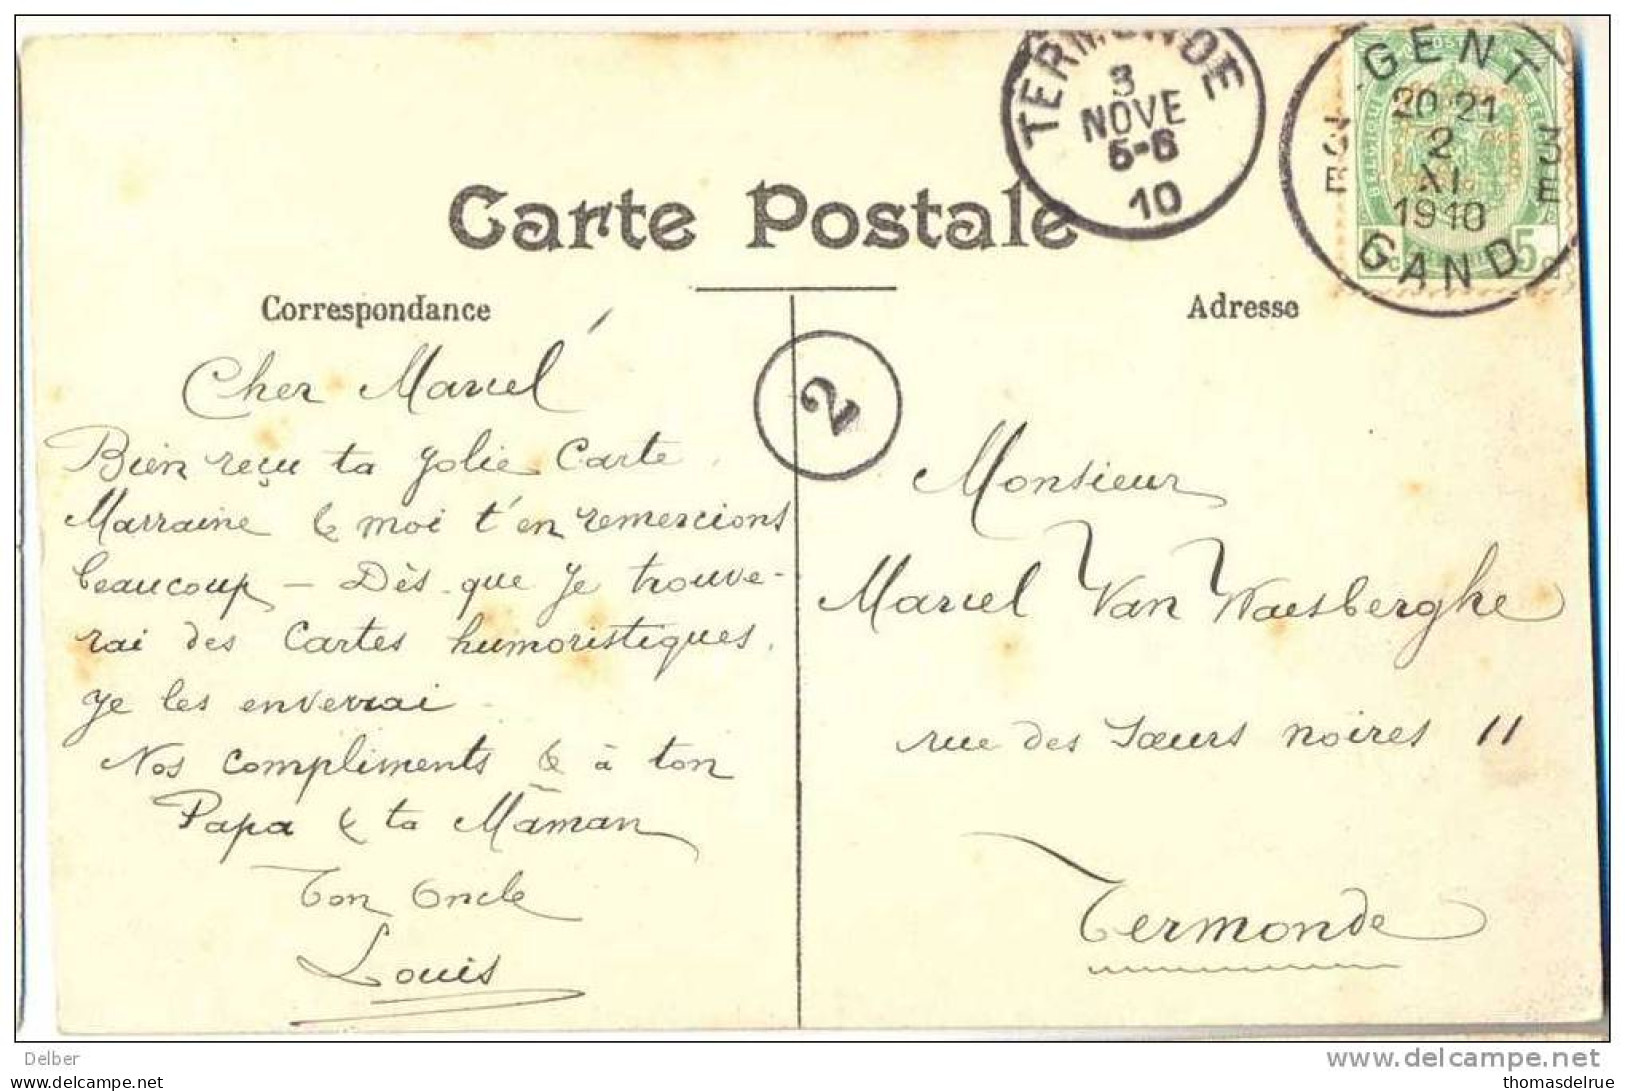 Carte Postale
TERMONDE
3
NOVE
5-6
10
GENT
20-21
2
XI
1910
GAND
5
Correspondance
Adresse
2
Cher Marcel
Bien reçu ta jolie Carte.
Marraine & moi t'en remercions
beaucoup — Dès que je trouve-
rai des Cartes humoristiques,
je les enverrai
Nos compliments & à ton
Papa & ta Maman
Ton Oncle
Louis
Monsieur
Marcel Van Waesberghe
rue des Sœurs noires 11
Termonde
Delber
www.delcampe.net
c6a.be/pc.php
thomasdelrue